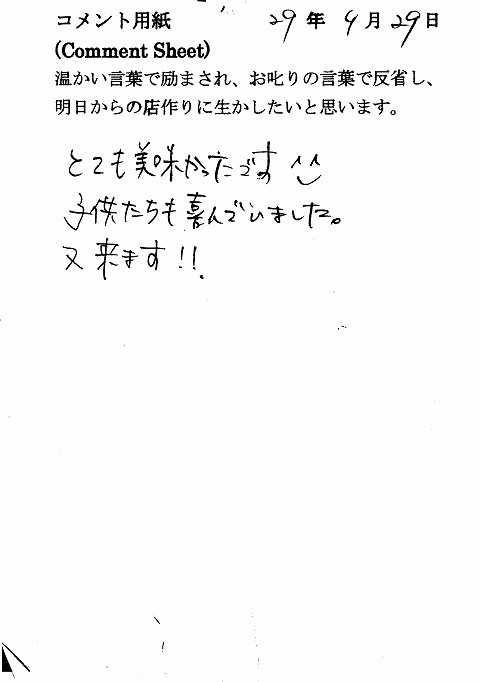 コメント用紙 29年4月29日
(Comment Sheet)
温かい言葉で励まされ、お叱りの言葉で反省し、
明日からの店作りに生かしたいと思います。
とても美味かったです
子供たちも喜んでいました。
又来ます!!